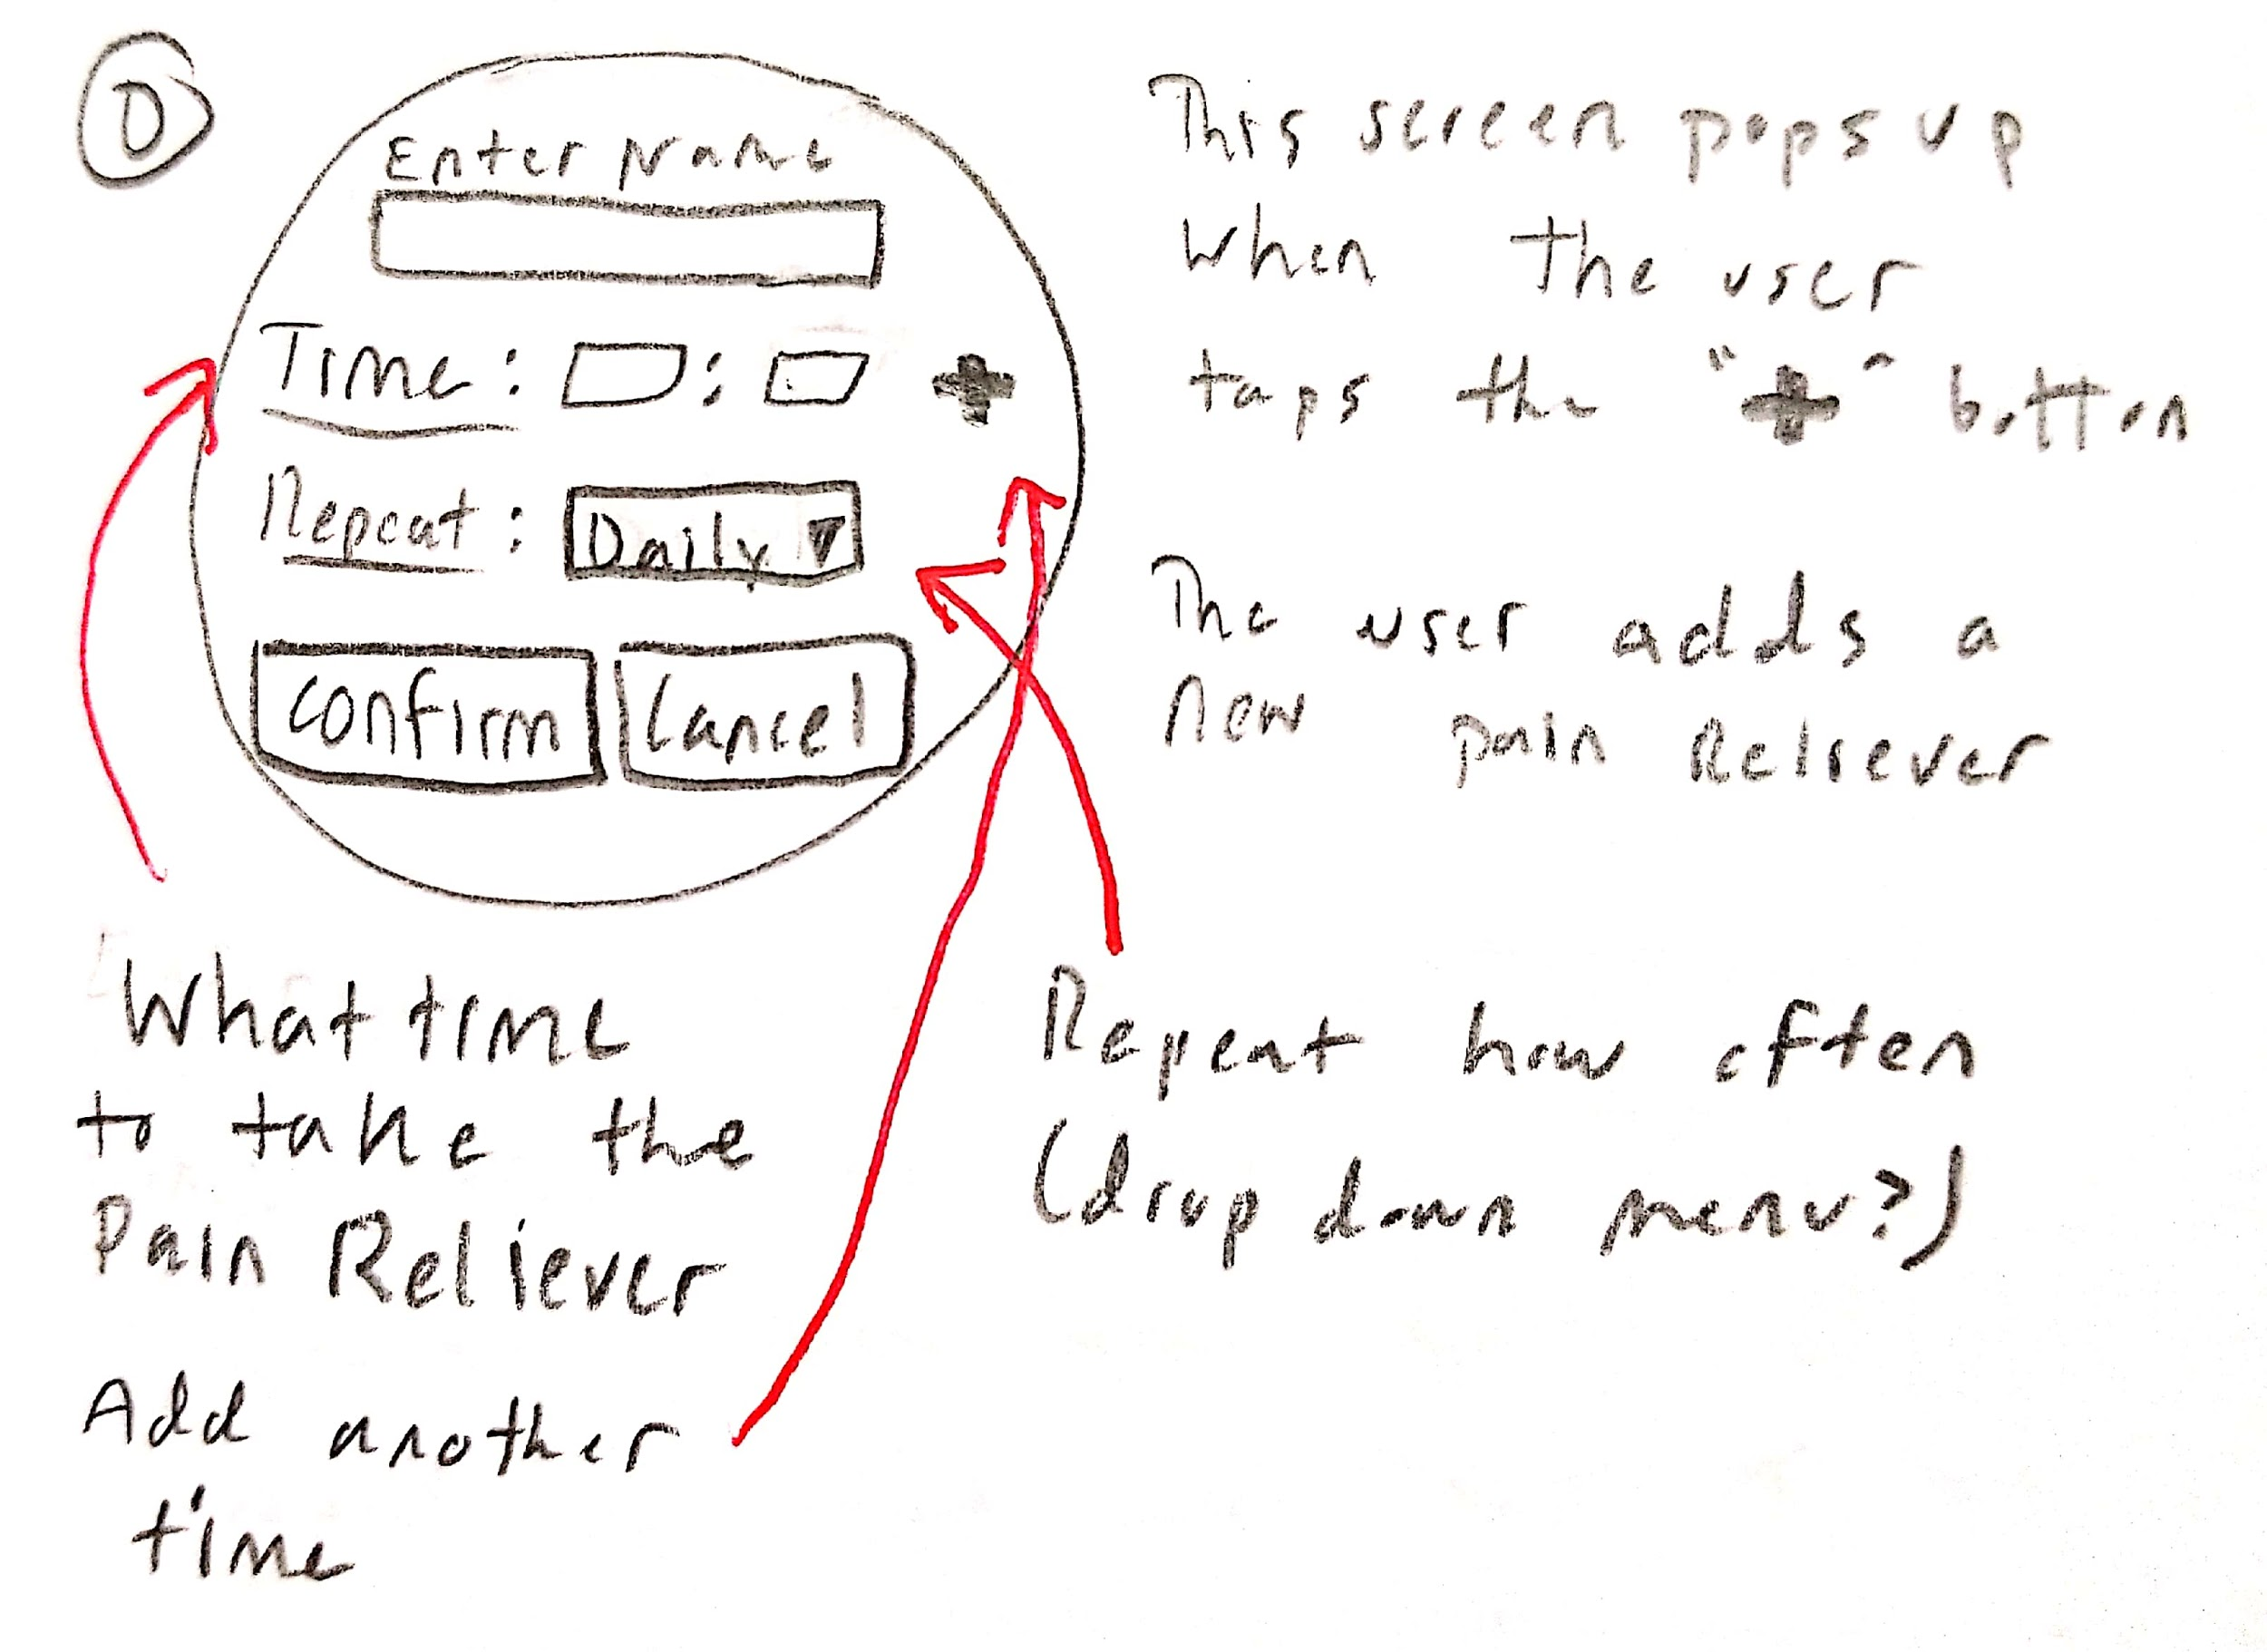 D
Enter Name
Time: :
Repeat: Daily
Confirm Cancel
This screen pops up
when the user
taps the "+" button
The user adds a
new pain Reliever
What time
to take the
Pain Reliever
Add another
time
Repeat how often
(drop down menu?)